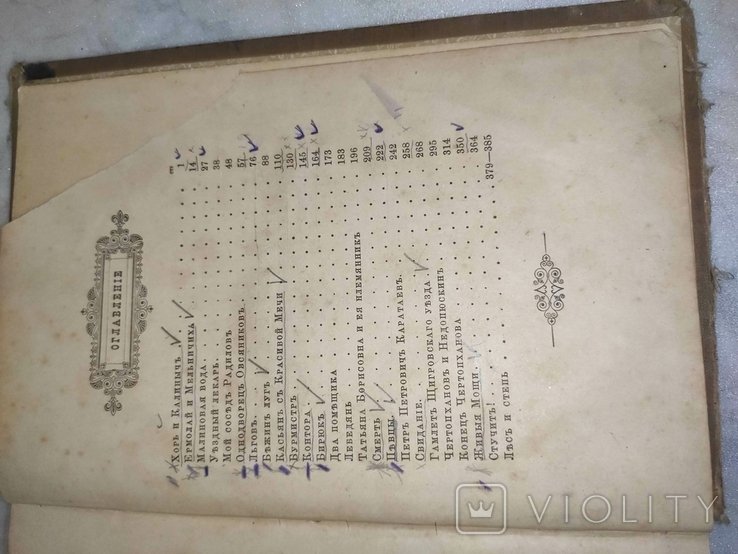 ОГЛАВЛЕНІЕ
Хорь и Калинычъ 1
Ермолай и Мельничиха 14
Малиновая вода 27
Уѣздный лекарь. 38
Мой сосѣдъ Радиловъ 48
Однодворецъ Овсяниковъ 57
Льговъ. 76
Бѣжинъ лугъ 88
Касьянъ съ Красивой Мечи 110
Бурмистръ 130
Контора 145
Бирюкъ 164
Два помѣщика 173
Лебедянь 183
Татьяна Борисовна и ея племянникъ 196
Смерть 209
Пѣвцы. 222
Петръ Петровичъ Каратаевъ. 242
Свиданіе. 258
Гамлетъ Щигровскаго уѣзда 268
Чертопхановъ и Недопюскинъ 295
Конецъ Чертопханова 314
Живыя Мощи. 350
Стучитъ! 364
Лѣсъ и степь 379—385
VIOLITY